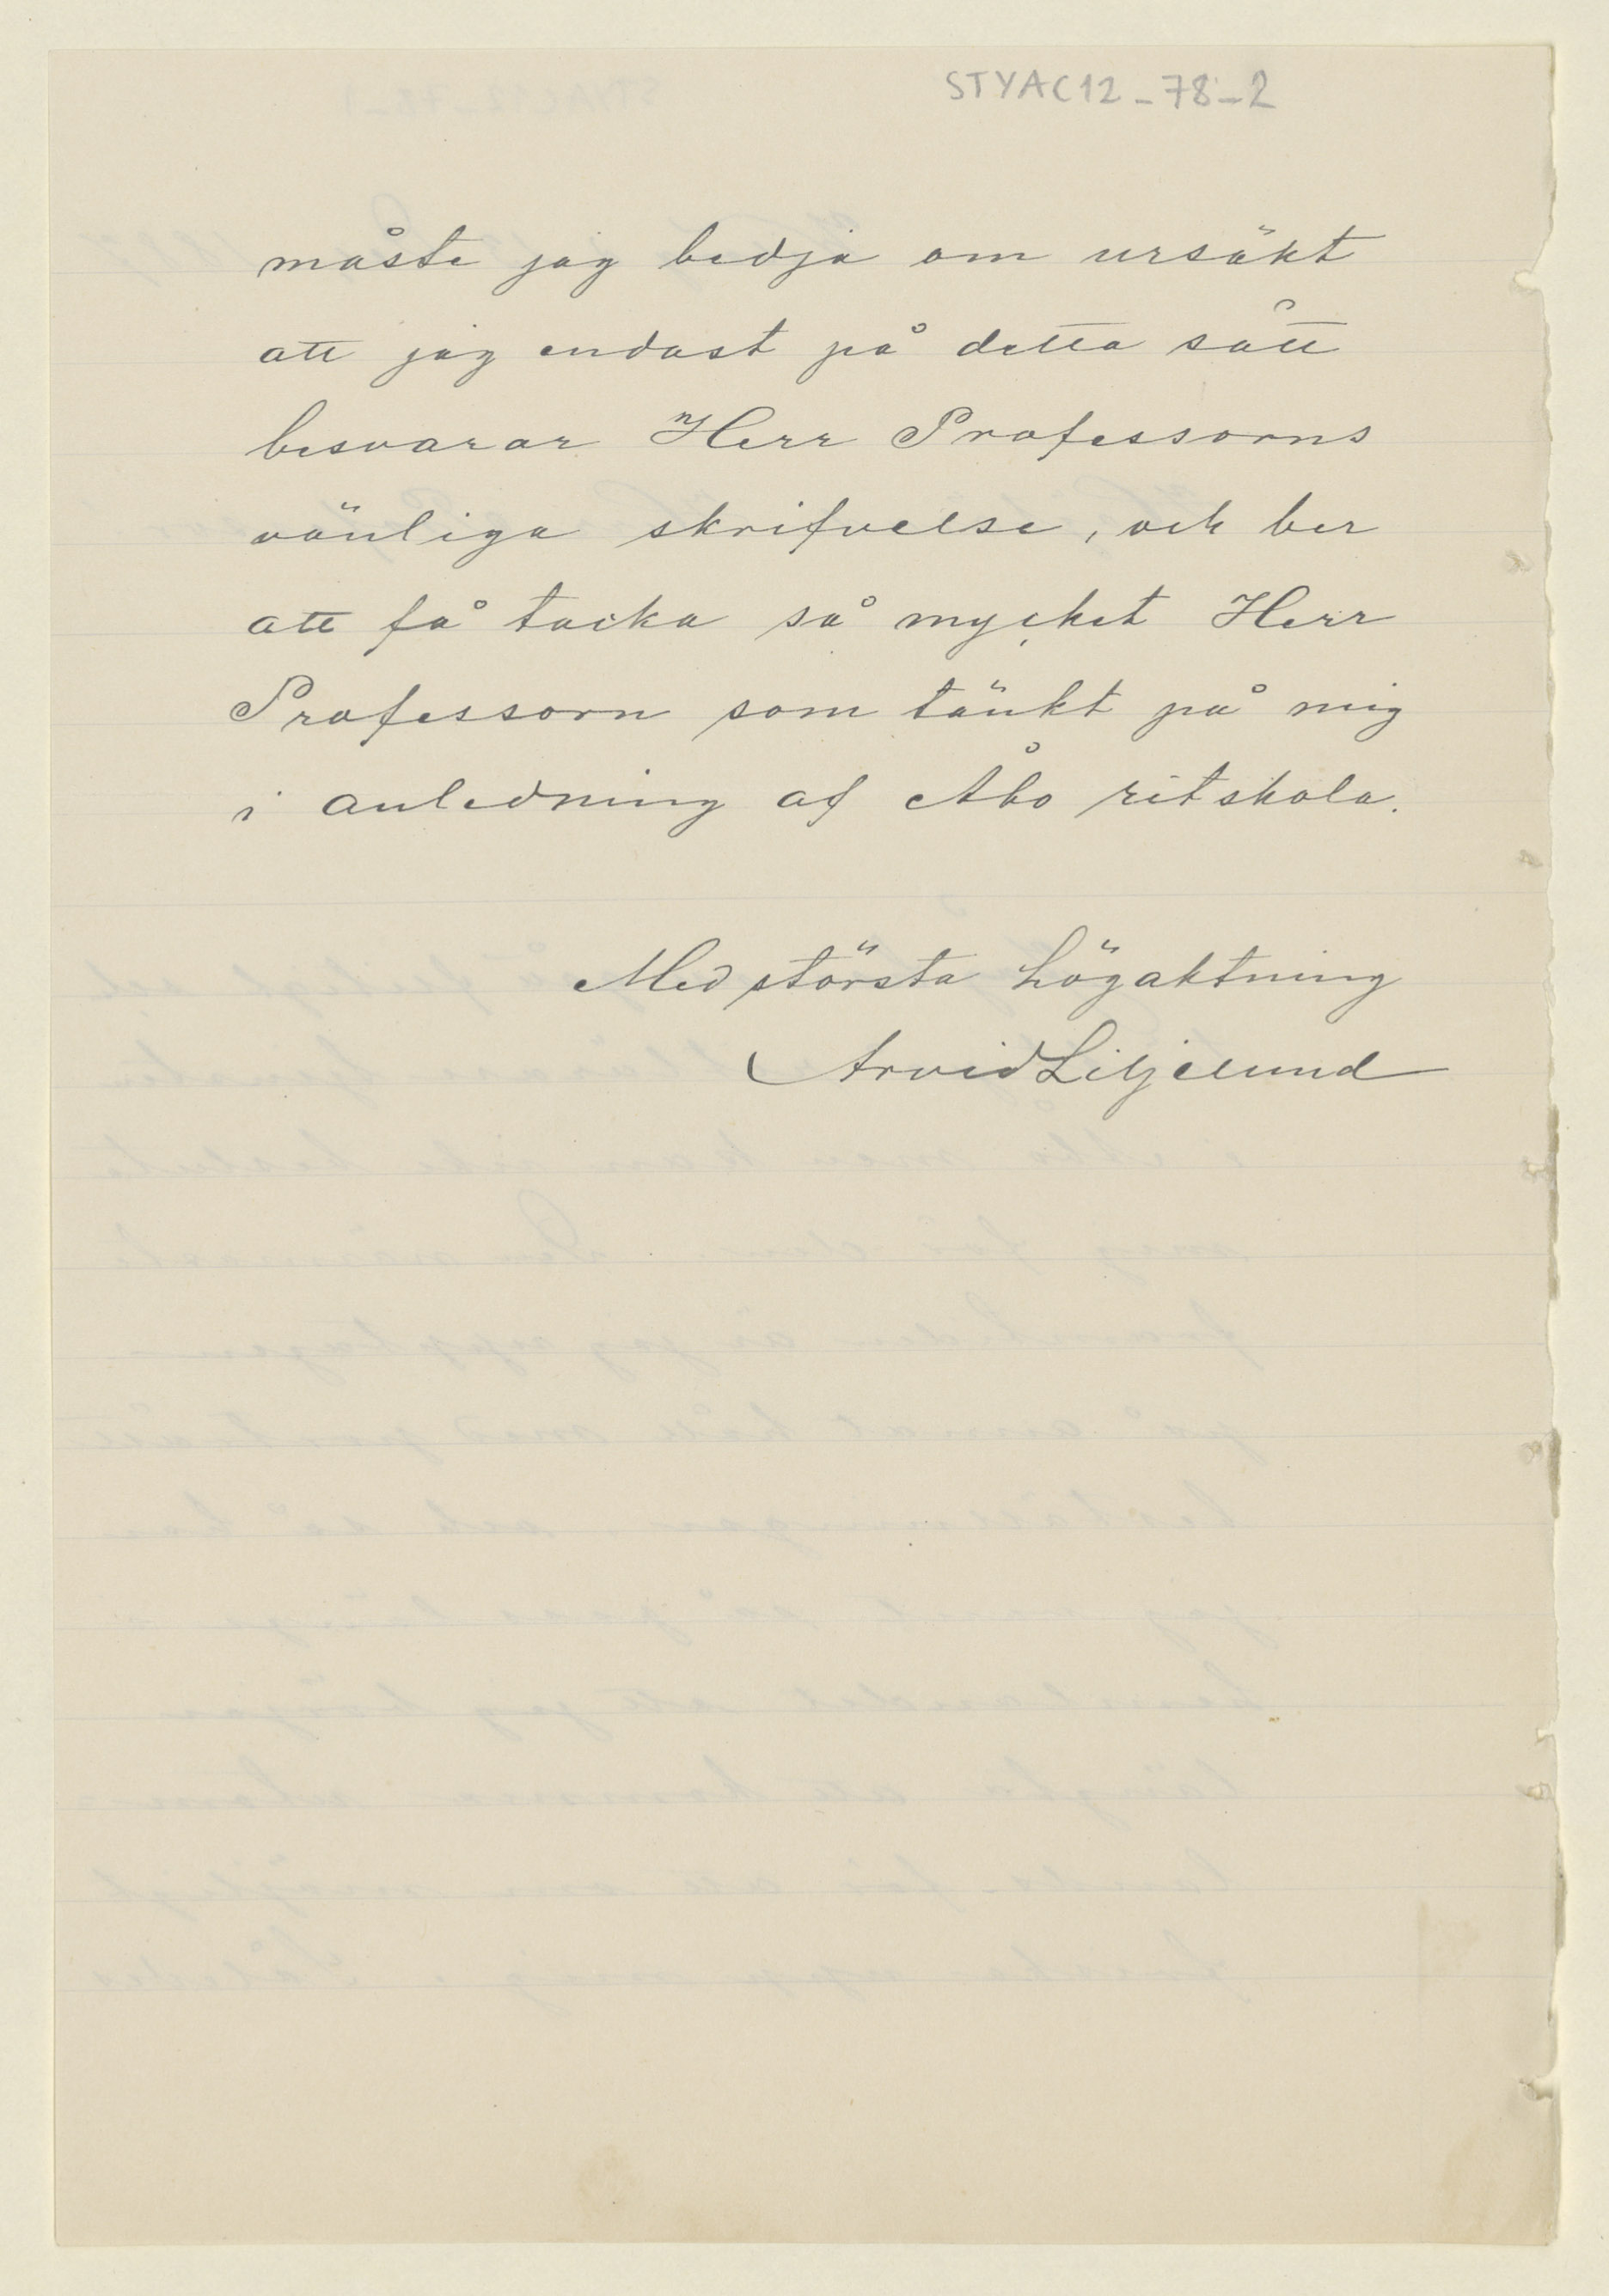 STYAC12_78_2
måste jag bedja om ursäkt
att jag endast på detta sätt
besvarar Herr Professorns
vänliga skrifvelse, och ber
att få tacka så mycket Herr
Professorn som tänkt på mig
i anledning af Åbo ritskola.
Med största högaktning
Arvid Liljelund